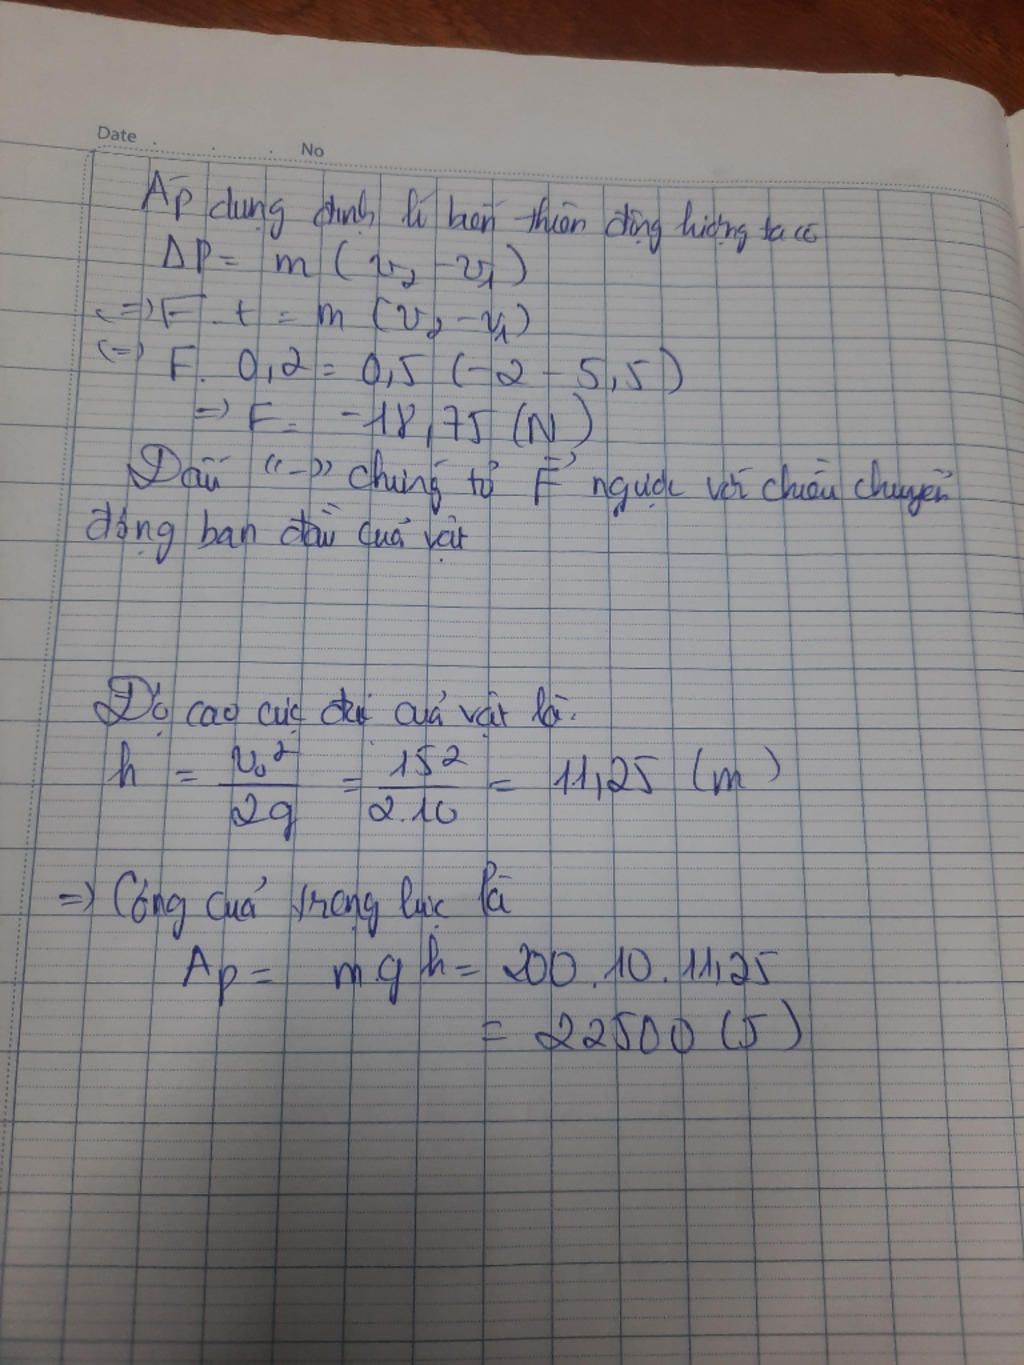 Date . . . No
Áp dụng định lí biến thiên động lượng ta có
ΔP = m (v₂ - v₁)
(=) F. t = m (v₂ - v₁)
(=) F. 0,2 = 0,5 (-2 - 5,5)
=) F = -18,75 (N)
Dấu "-" chứng tỏ F ngược với chiều chuyển
động ban đầu quả vật
Độ cao cực đại quả vật là:
h = v₀²/2g = 15²/2.10 = 11,25 (m)
=) Công quả trọng lực là
Ap = m g h = 200.10.11,25
= 22500 (J)